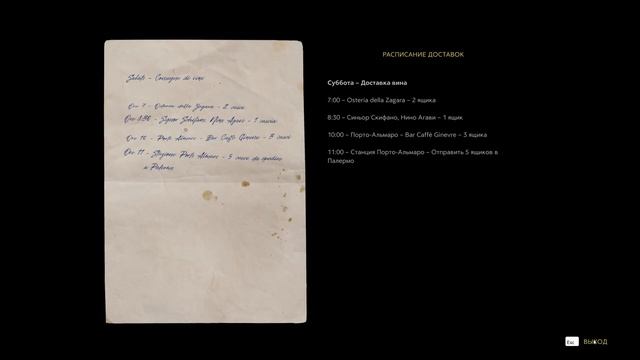 Sabato - Consegne di vino
Ore 7 - Osteria della Zagara - 2 casse
Ore 8:30 - Signor Schifano, Nino Agavi - 1 cassa
Ore 10 - Porto Almaro - Bar Caffè Ginevre - 3 casse
Ore 11 - Stazione Porto Almaro - 5 casse da spedire
a Palermo
РАСПИСАНИЕ ДОСТАВОК
Суббота – Доставка вина
7:00 – Osteria della Zagara – 2 ящика
8:30 – Синьор Скифано, Нино Агави – 1 ящик
10:00 – Порто-Альмаро – Bar Caffè Ginevre – 3 ящика
11:00 – Станция Порто-Альмаро – Отправить 5 ящиков в
Палермо
Esc ВЫХОД